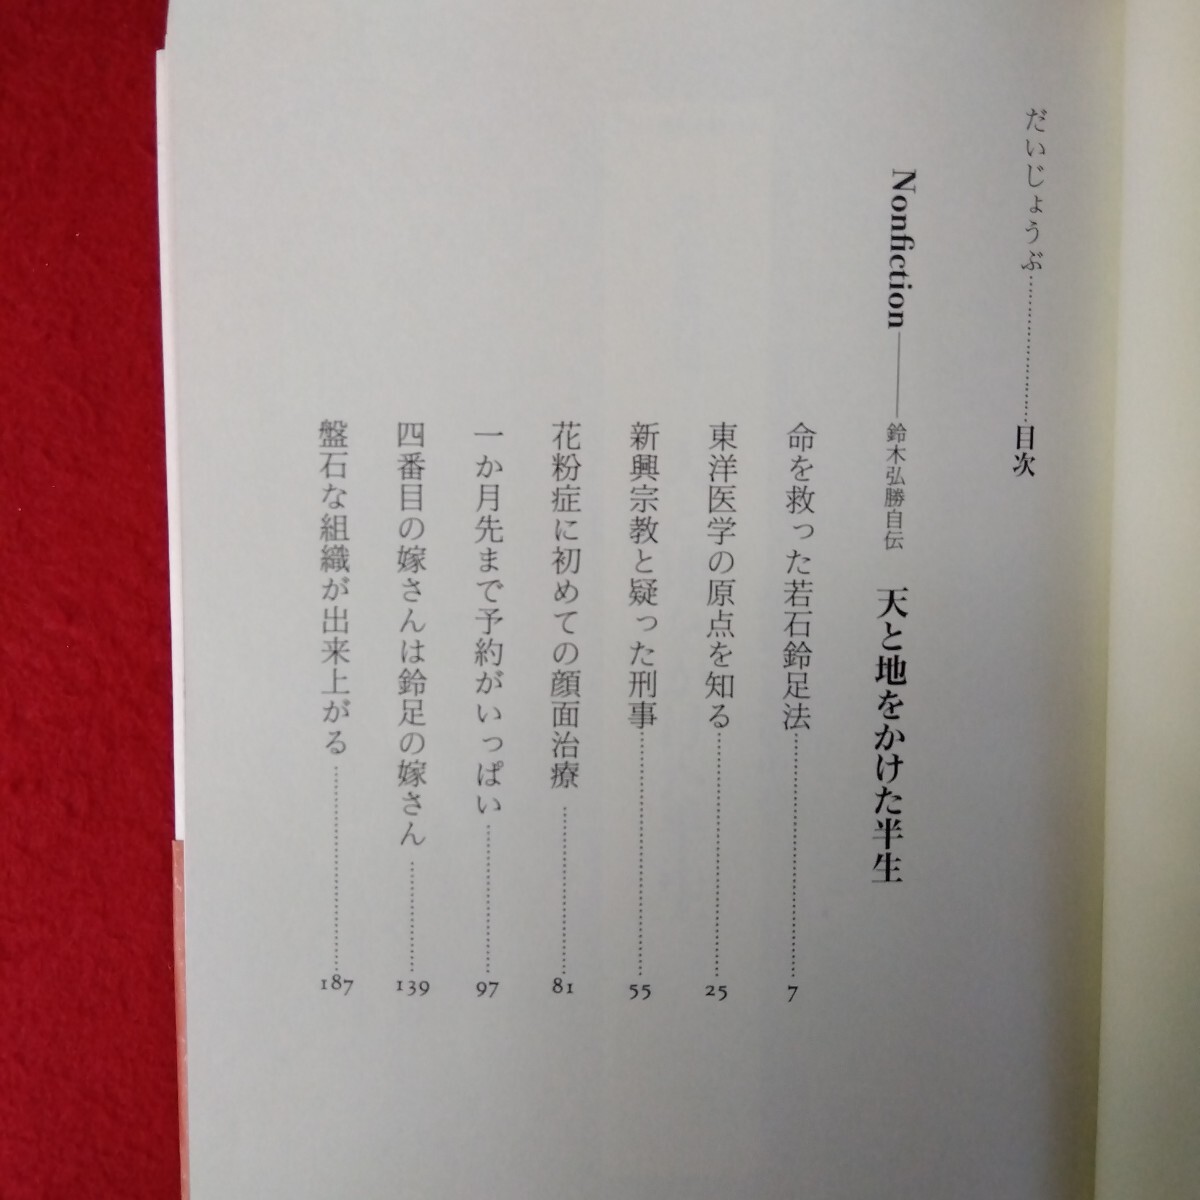 だいじょうぶ……………………目次
Nonfiction――鈴木弘勝自伝　天と地をかけた半生
命を救った若石鈴足法……………………7
東洋医学の原点を知る……………………25
新興宗教と疑った刑事……………………55
花粉症に初めての顔面治療……………………81
一か月先まで予約がいっぱい……………………97
四番目の嫁さんは鈴足の嫁さん……………………139
盤石な組織が出来上がる……………………187